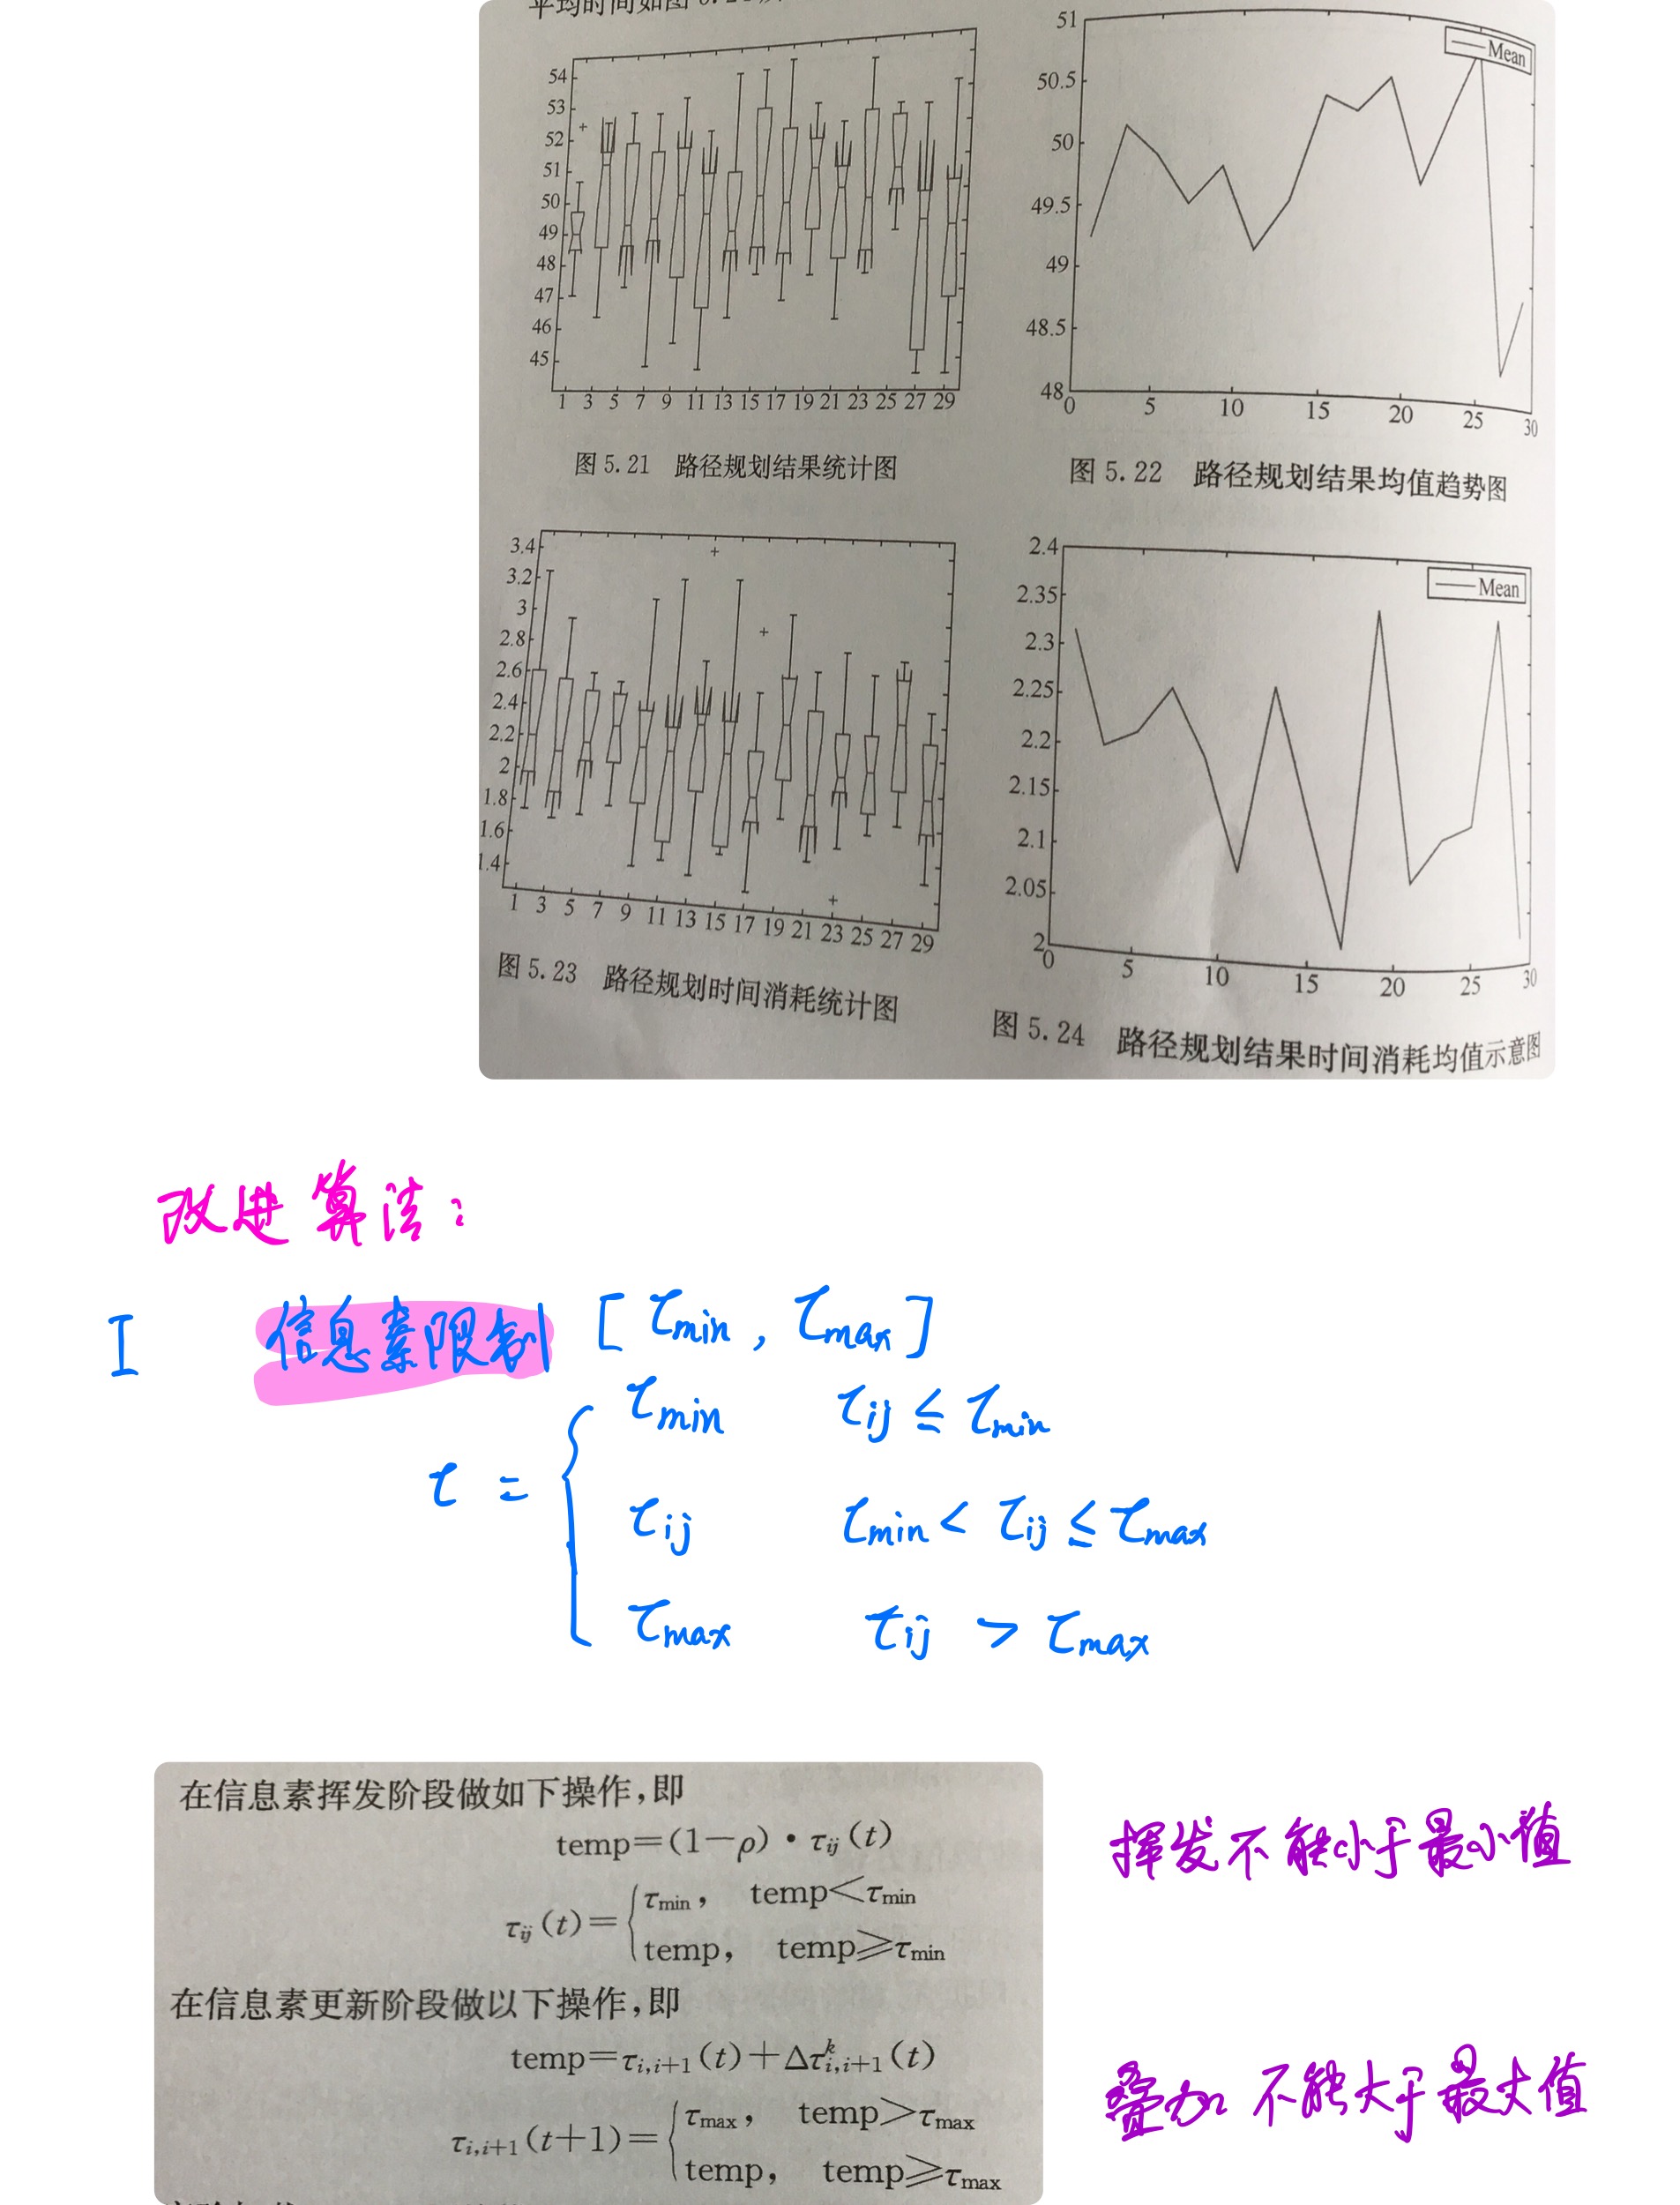 平均时间如图5.24
54
53
52
51
50
49
48
47
46
45
1 3 5 7 9 11 13 15 17 19 21 23 25 27 29
图 5.21 路径规划结果统计图
51
50.5
50
49.5
49
48.5
48
0 5 10 15 20 25 30
Mean
图 5.22 路径规划结果均值趋势图
3.4
3.2
3
2.8
2.6
2.4
2.2
2
1.8
1.6
1.4
1 3 5 7 9 11 13 15 17 19 21 23 25 27 29
图 5.23 路径规划时间消耗统计图
2.4
2.35
2.3
2.25
2.2
2.15
2.1
2.05
2
0 5 10 15 20 25 30
Mean
图 5.24 路径规划结果时间消耗均值示意图
改进算法:
I 信息素限制 [τmin, τmax]
τmin τij ≤ τmin
τ = { τij τmin < τij ≤ τmax
τmax τij > τmax
在信息素挥发阶段做如下操作,即
temp=(1-ρ)·τij(t)
τij(t)={τmin, temp<τmin
temp, temp≥τmin
挥发不能小于最小值
在信息素更新阶段做以下操作,即
temp=τi,i+1(t)+Δτ^k i,i+1(t)
τi,i+1(t+1)={τmax, temp>τmax
temp, temp≥τmax
叠加不能大于最大值